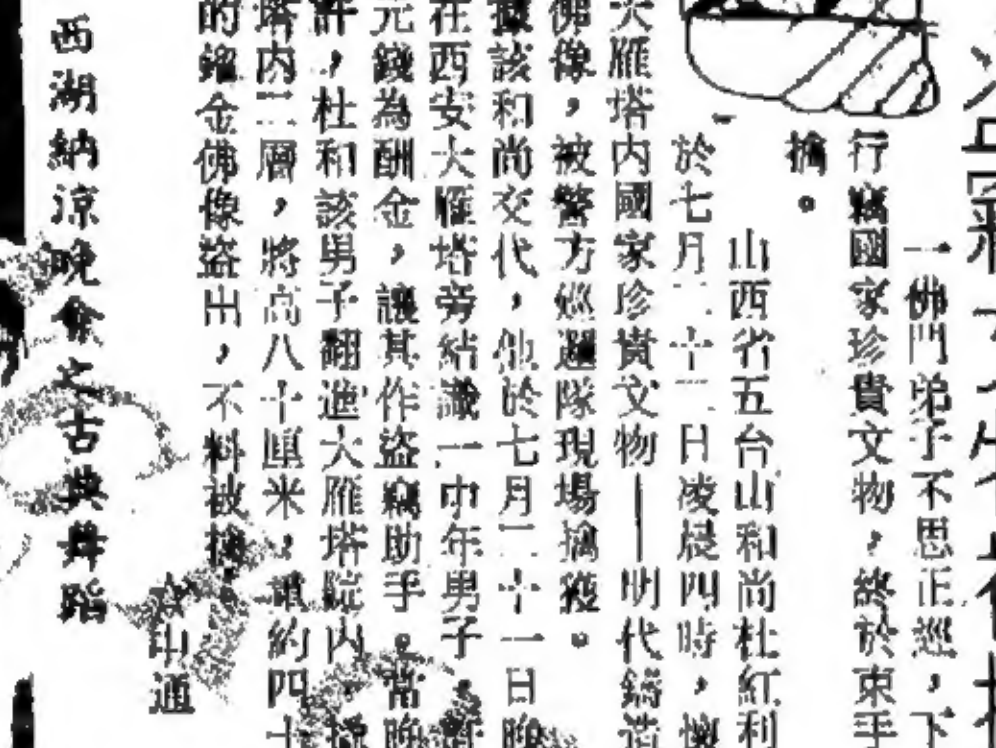 一佛門弟子不思正巡,下
行竊國家珍貴文物,終於束手
擒。
山西省五台山和尚杜紅利
於七月二十二日凌晨四時,懷
大雁塔内國家珍貴文物——明代鑄造
佛像,被警方巡邏隊現場擒獲。
據該和尚交代,他於七月二十一日晚
在西安大雁塔旁結識一中年男子,
元錢為酬金,讓其作盜竊助手。當晚
許,杜和該男子翻進大雁塔院内,
塔内二層,將高八十厘米,重約四十
的鎦金佛像盜出,不料被擒。
山通
西湖納涼晚會之古典舞蹈